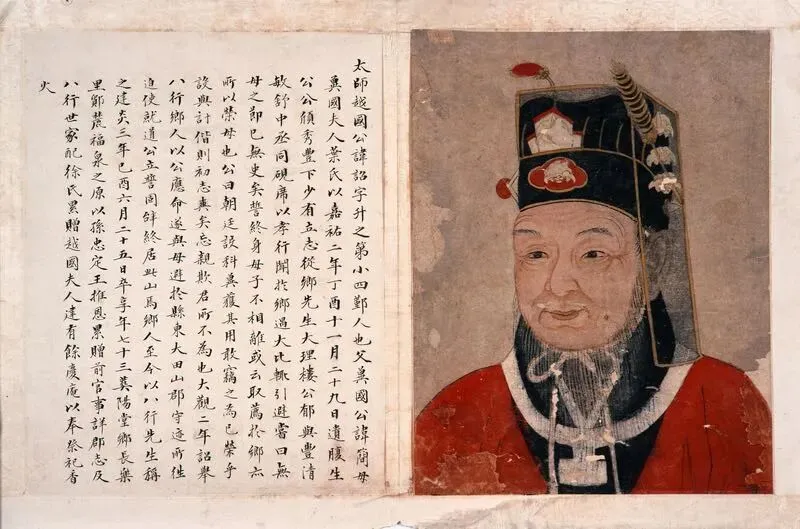 太師越國公諱詔字升之第小四鄞人也父冀國公諱簡母
冀國夫人葉氏以嘉祐二年丁酉十一月二十九日遺腹生
公公頎秀豐下少有立志從鄉先生大理樓公郁與豐清
敏舒中丞同硯席以孝行聞於鄉遇大比輒引避嘗曰無
母之節已無史矣誓終身母子不相離或云取薦於鄉亦
所以榮母也公曰朝廷設科冀獲其用敢竊之為已榮乎
設與計偕則初志爽矣忘親欺君所不為也大觀二年詔舉
八行鄉人以公應命遂與母避於縣東大田山郡守迹所往
迫使就道公立誓固辭終居此山焉鄉人至今以八行先生稱
之建炎三年己酉六月二十五日卒享年七十三葬陽堂鄉長樂
里鄮麓福泉之原以孫忠定王推恩累贈前官事詳郡志及
八行世家配徐氏累贈越國夫人建有餘慶庵以奉祭祀香
火